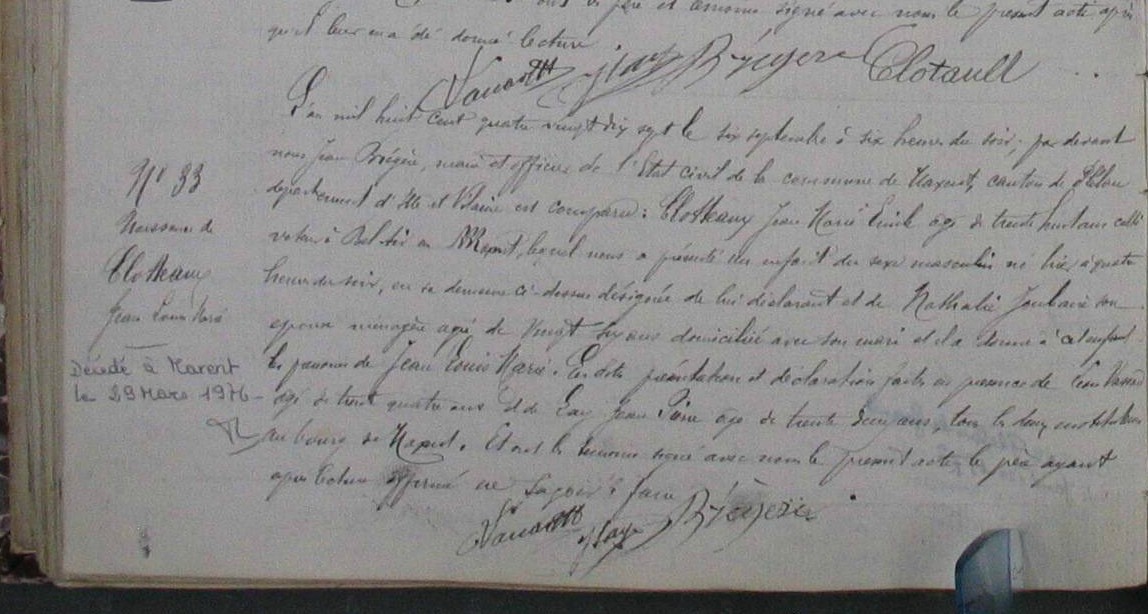 ont le père et témoins signé avec nous le présent acte après
qu'il leur en a été donné lecture.
Hay Brégère Clotault
L'an mil huit cent quatre vingt dix sept le six septembre à six heures du soir, par devant
nous Jean Brégère, maire et officier de l'Etat civil de la commune de Maxent, canton de Plélan
département d'Ille et Vilaine est comparu : Clotteaux Jean Marie Emile âgé de trente huit ans culti
vateur à Bel-Air en Maxent, lequel nous a présenté un enfant du sexe masculin né hier à quatre
heures du soir, en sa demeure ci-dessus désignée de lui déclarant et de Nathalie Joubaire son
épouse ménagère agée de vingt six ans domiciliée avec son mari et il a donné à cet enfant
les prénoms de Jean Louis Marie. Les dites présentation et déclaration faites en présence de
âgé de trente quatre ans et de Hay Jean Pierre âgé de trente deux ans, tous les deux
au bourg de Maxent. Et ont les témoins signé avec nous le présent acte le père ayant
après lecture affirmé ne savoir faire
Hay Brégère
N° 33
Naissance de
Clotteaux
Jean Louis Marie
Décédé à Maxent
le 29 Mars 1976